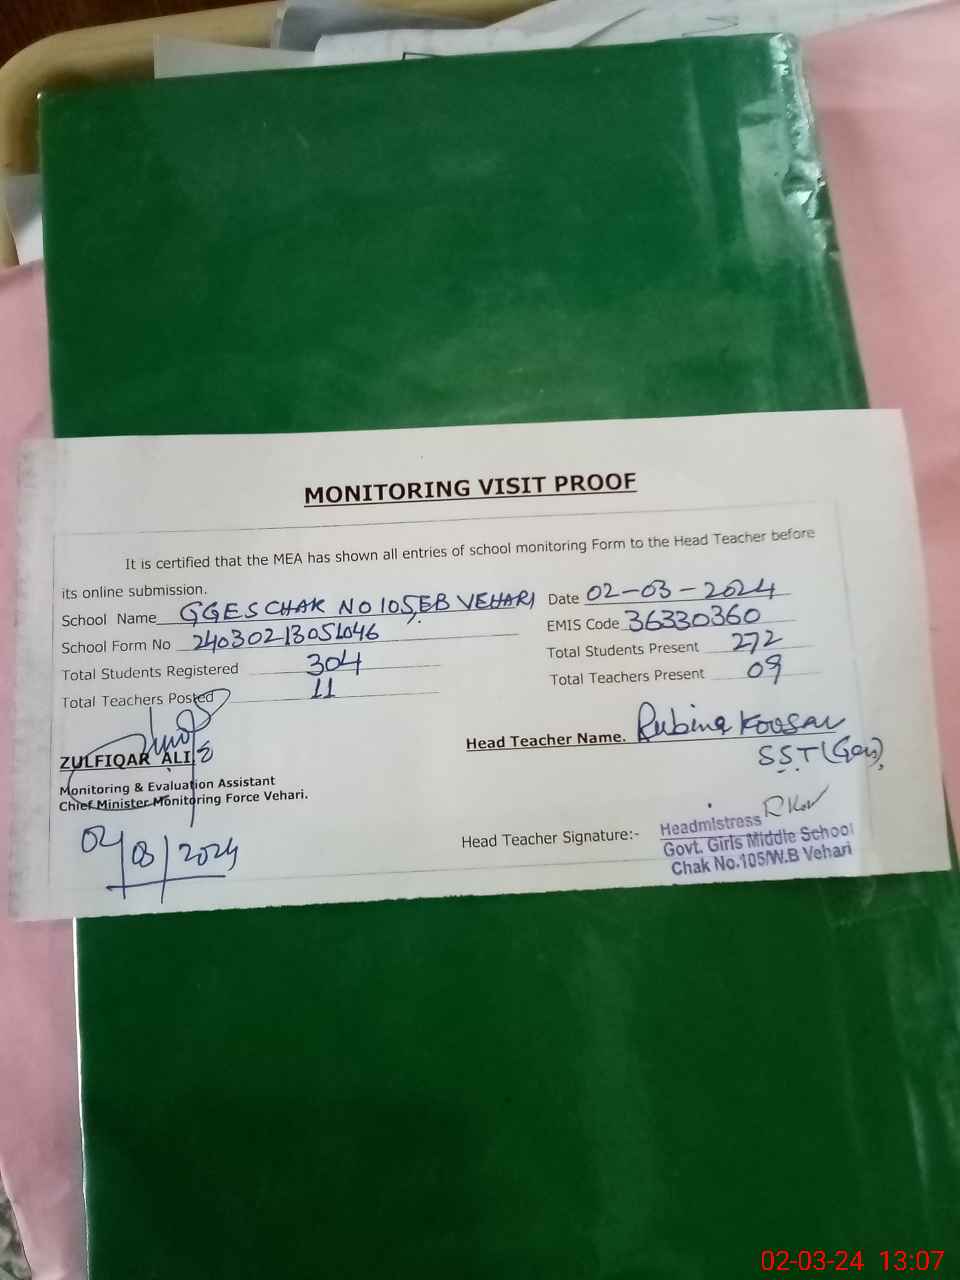 MONITORING VISIT PROOF
It is certified that the MEA has shown all entries of school monitoring Form to the Head Teacher before
its online submission.
School Name GGES CHAK NO 105,EB VEHARI
Date 02-03-2024
School Form No
EMIS Code 36330360
Total Students Registered 304
Total Students Present 272
Total Teachers Posted 11
Total Teachers Present 09
ZULFIQAR ALI
Head Teacher Name. Rubina Koosar
SST (Gen)
Monitoring & Evaluation Assistant
Chief Minister Monitoring Force Vehari.
02/03/2024
Head Teacher Signature:-
Headmistress
Govt. Girls Middle School
Chak No.105/W.B Vehari
02-03-24 13:07